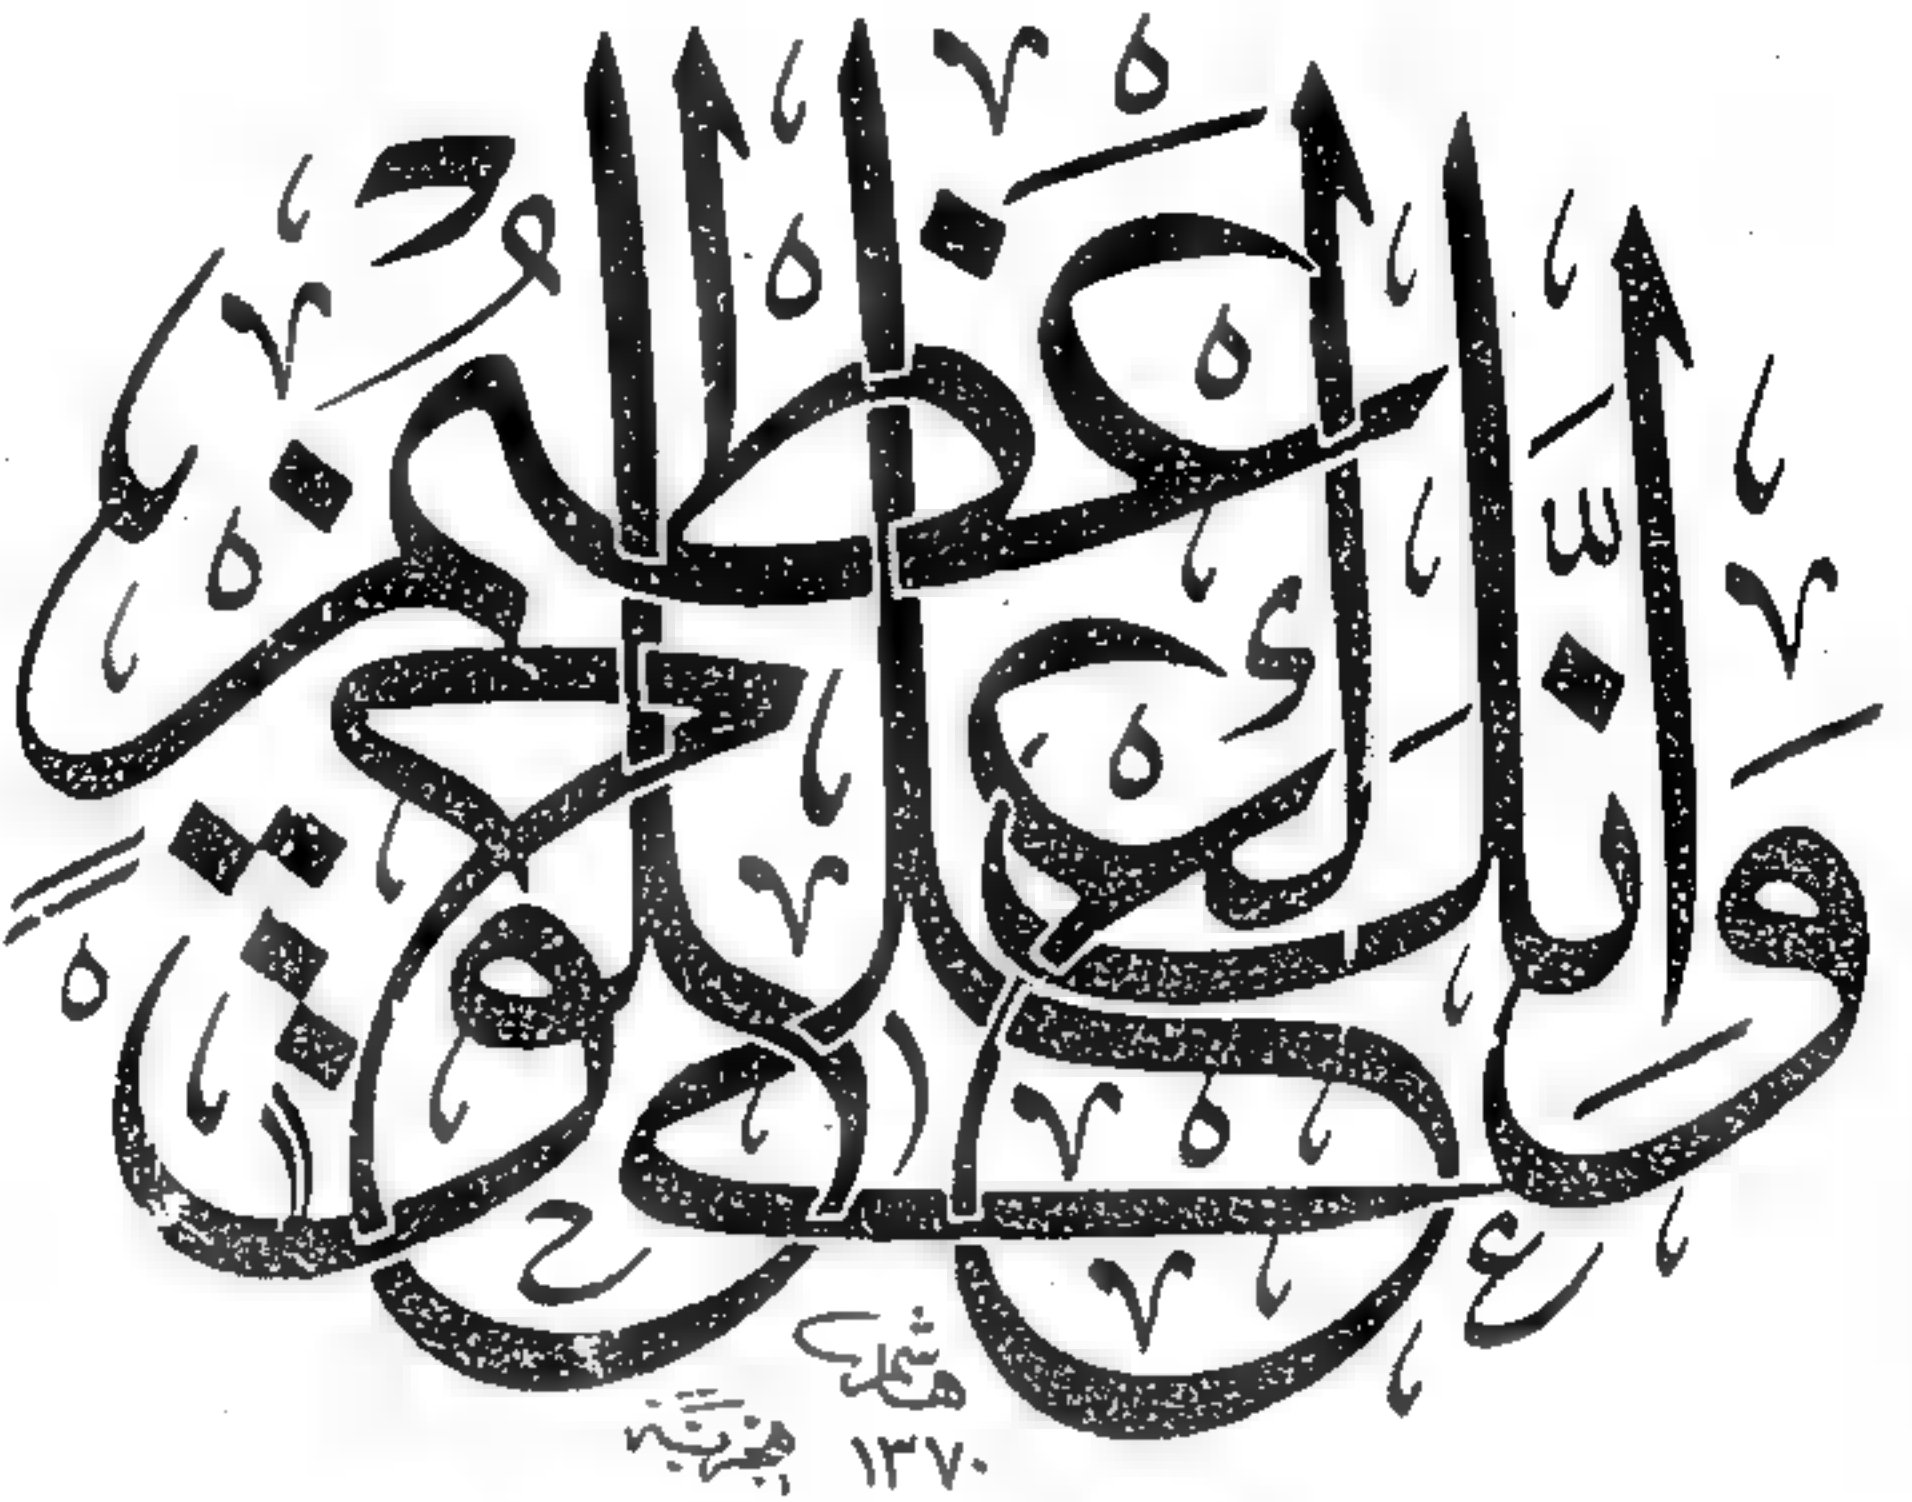 وَإِنَّكَ لَعَلَىٰ خُلُقٍ عَظِيمٍ
هاشم
١٣٧٠